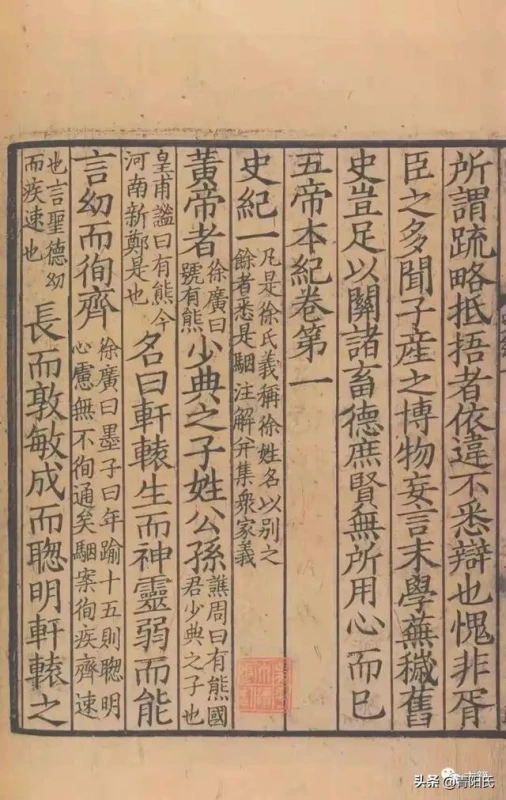 所謂疏略抵捂者依違不悉辯也愧非胥
臣之多聞子産之博物妄言末學蕪穢舊
史豈足以關諸畜德庶賢無所用心而已
五帝本紀卷第一
史紀一
凡是徐氏義稱徐姓名以别之
餘者悉是駰注解并集衆家義
黃帝者
徐廣曰
號有熊
少典之子姓公孫
譙周曰有熊國
君少典之子也
皇甫謐曰有熊今
河南新鄭是也
名曰軒轅生而神靈弱而能
言㓜而徇齊
徐廣曰墨子曰年踰十五則聦明
心慮無不徇通矣駰案徇疾齊速
也言聖德㓜
而疾速也
長而敦敏成而聦明軒轅之
头条 @青阳氏